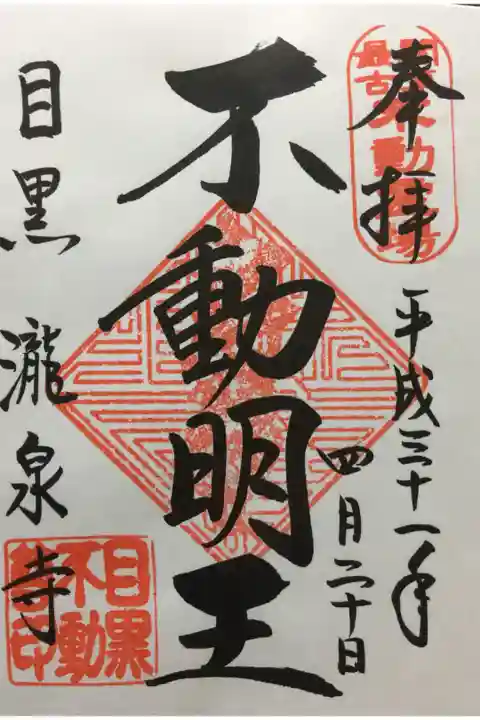 奉拝
関東最古不動霊場
平成三十一年
四月二十日
不動明王
目黒 瀧泉寺
目黒不動